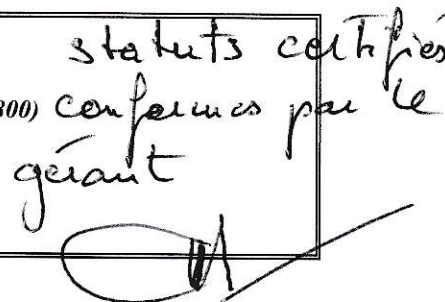 statuts certifiés
800) conformes par le
gérant